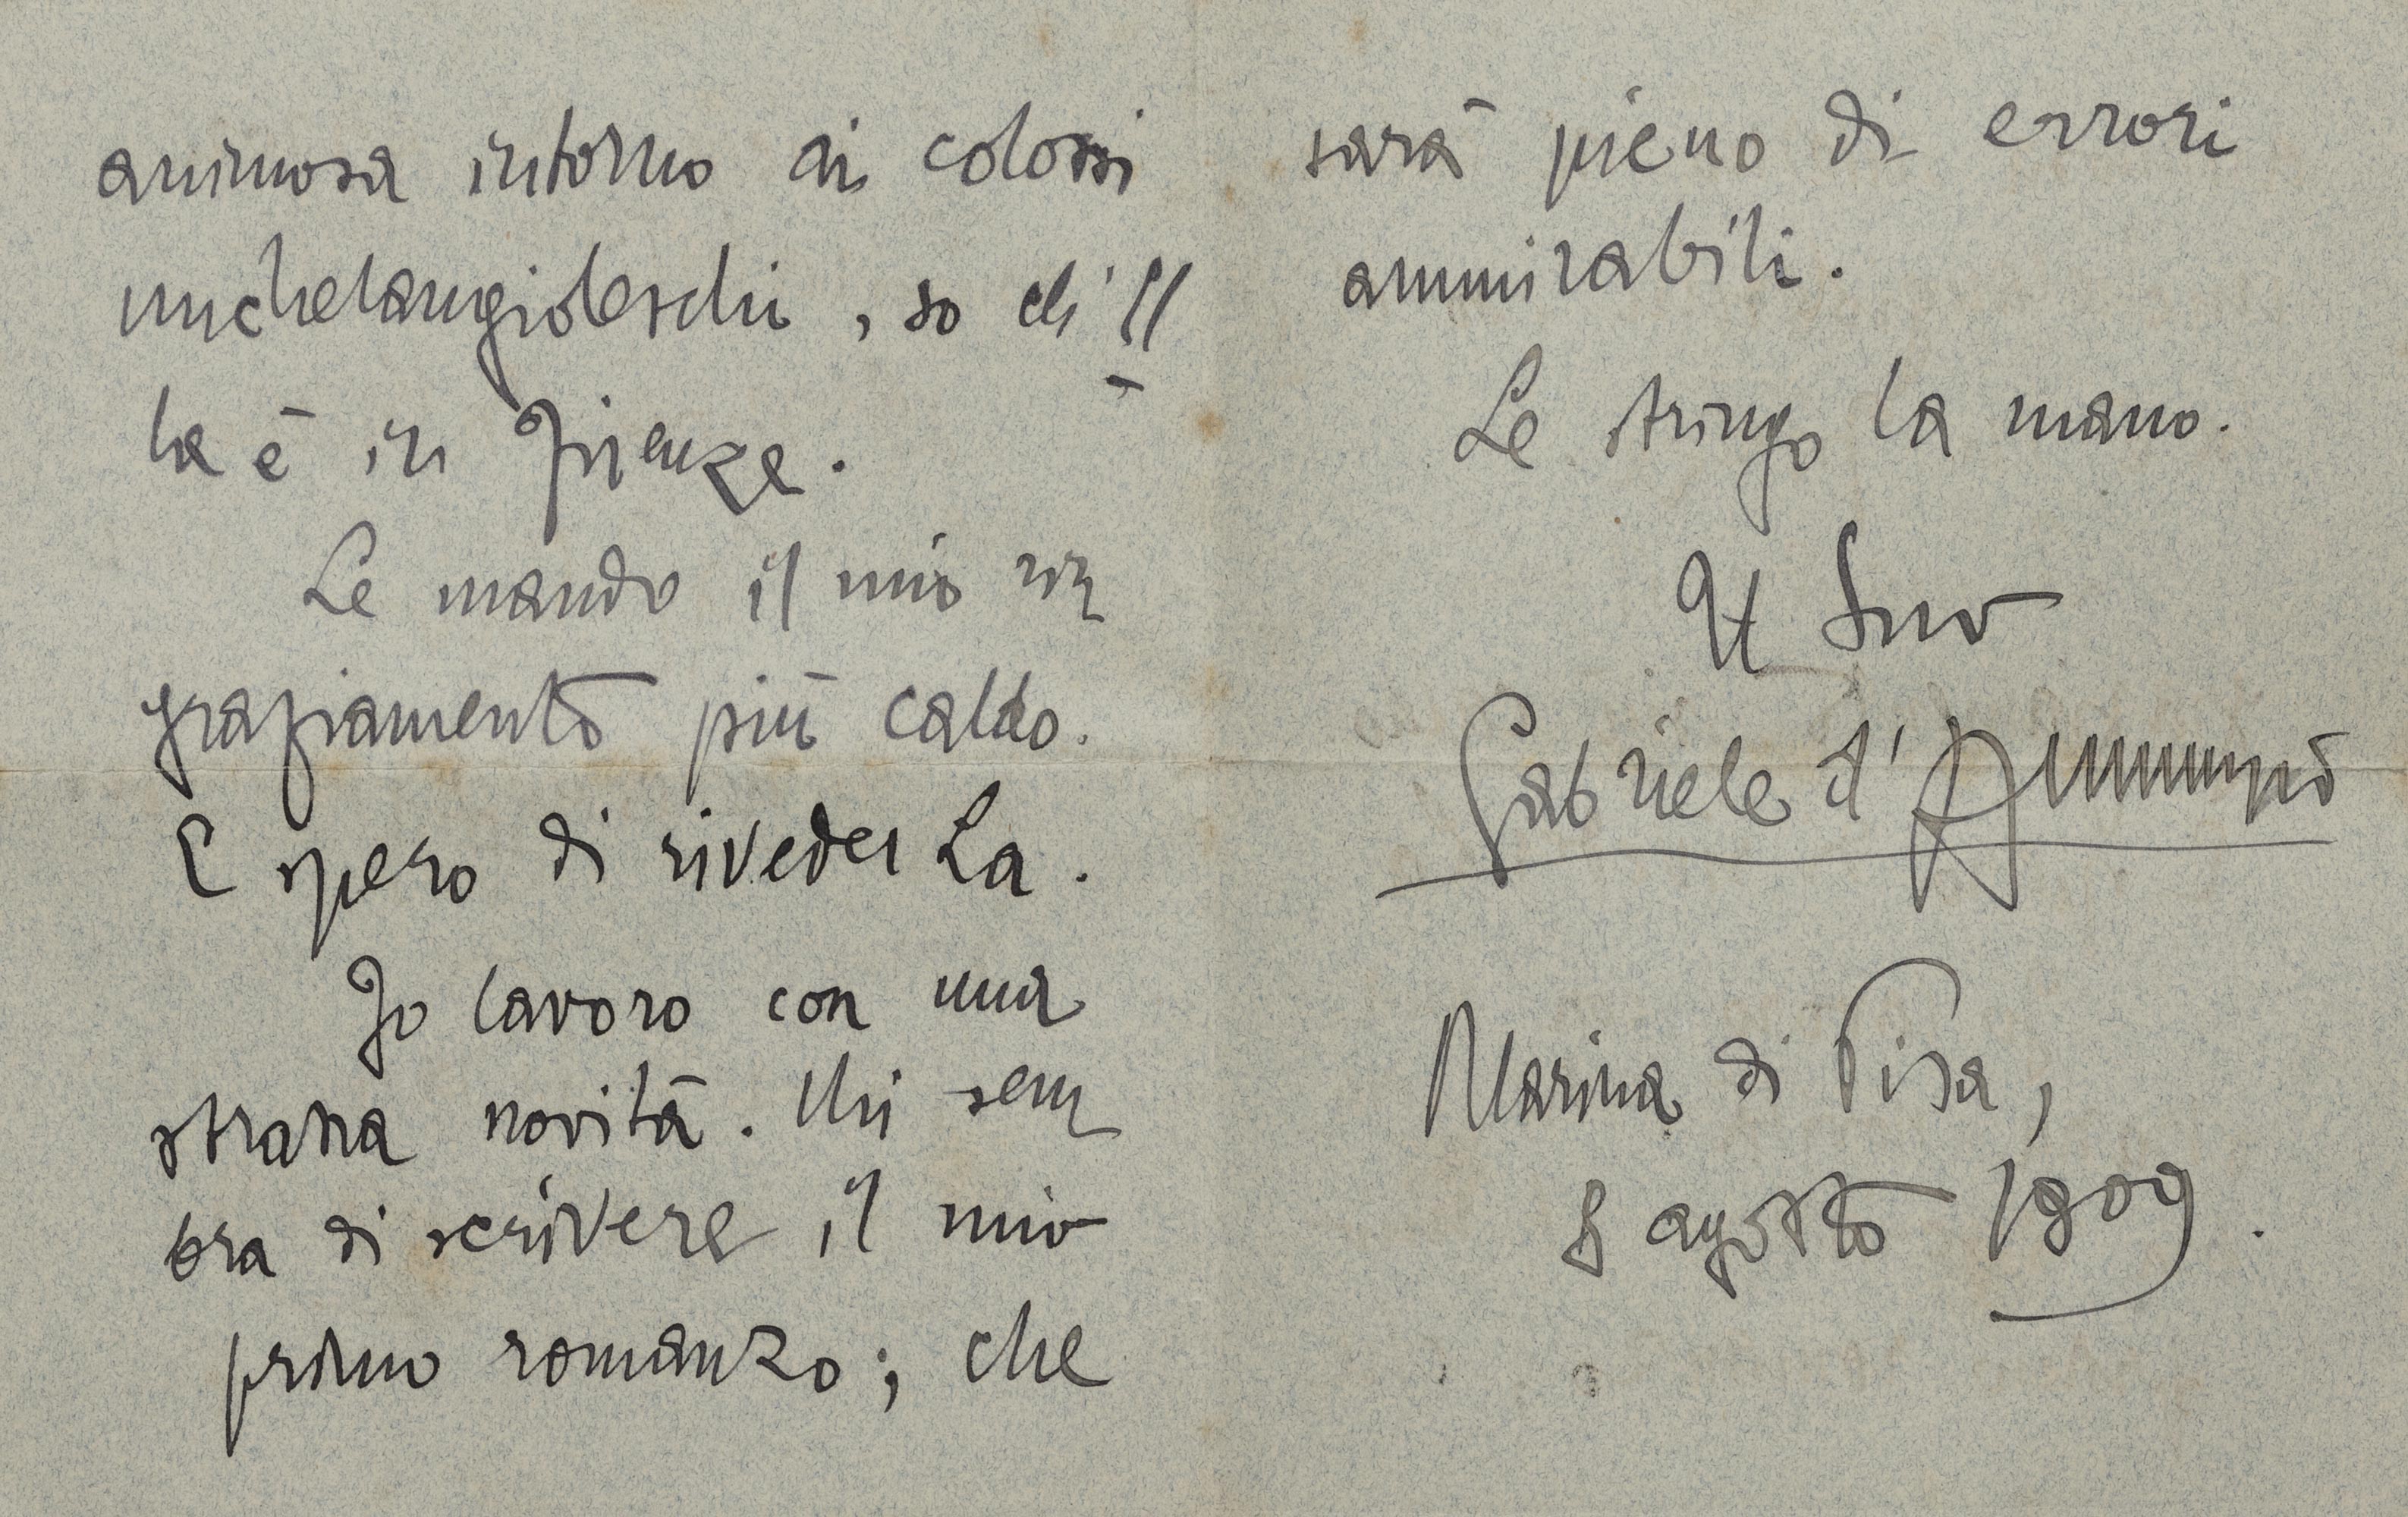 animosa intorno ai colossi
michelangioleschi, so ch'El
la è in Firenze.
Le mando il mio rin
graziamento più caldo.
E spero di riveder La.
Io lavoro con una
strana novità. Mi sem
bra di scrivere il mio
primo romanzo; che
sarà pieno di errori
ammirabili.
Le stringo la mano.
Il Suo
Gabriele d'Annunzio
Marina di Pisa,
8 agosto 1909.